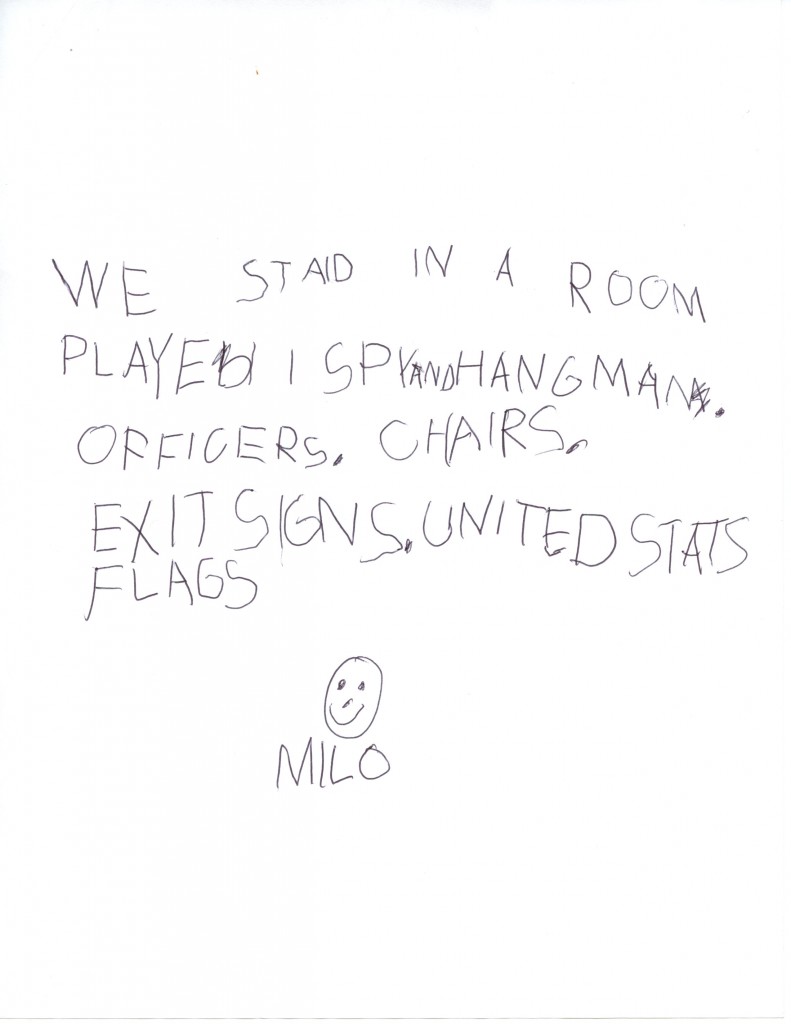 WE STAID IN A ROOM
PLAYED I SPY AND HANGMAN.
OFFICERS. CHAIRS.
EXIT SIGNS. UNITED STATS
FLAGS
MILO